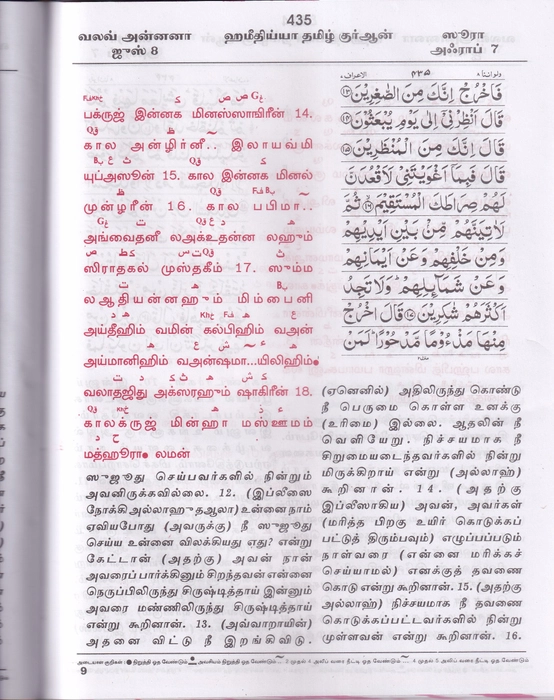 435
வலவ் அன்னனா
ஜுஸ் 8
ஹமீதிய்யா தமிழ் குர்ஆன்
ஸூரா
அஃராப் 7
ولواننا ٨
٤٣٥
الاعراف ٧
பக்ருஜ் இன்னக மினஸ்ஸாஃிரீன் 14.
கால அன்ழிர்னீ.. இலாயவ்மி
யுப்அஸூன் 15. கால இன்னக மினல்
முன்ழரீன் 16. கால பபிமா..
அங்வைதனீ லஅக்உதன்ன லஹும்
ஸிராதகல் முஸ்தகீம் 17. ஸும்ம
லஆதியன்னஹும் மிம்பைனி
அய்தீஹிம் வமின் கல்பிஹிம் வஅன்
அய்மானிஹிம் வஅன்ஷமா...யிலிஹிம்
வலாதஜிது அக்ஸரஹும் ஷாகிரீன் 18.
காலக்ருஜ் மின்ஹா மஸ்ஊமம்
மத்ஹூரா லமன்
فَاخْرُجْ اِنَّكَ مِنَ الصّٰغِرِيْنَ ﴿١٣﴾
قَالَ اَنْظِرْنِىْۤ اِلٰى يَوْمِ يُبْعَثُوْنَ ﴿١٤﴾
قَالَ اِنَّكَ مِنَ الْمُنْظَرِيْنَ ﴿١٥﴾
قَالَ فَبِمَاۤ اَغْوَيْتَنِىْ لَاَقْعُدَنَّ
لَهُمْ صِرَاطَكَ الْمُسْتَقِيْمَ ﴿١٦﴾ ثُمَّ
لَاٰتِيَنَّهُمْ مِّنْۢ بَيْنِ اَيْدِيْهِمْ
وَمِنْ خَلْفِهِمْ وَعَنْ اَيْمَانِهِمْ
وَعَنْ شَمَآئِلِهِمْ وَلَا تَجِدُ
اَكْثَرَهُمْ شٰكِرِيْنَ ﴿١٧﴾ قَالَ اخْرُجْ
مِنْهَا مَذْءُوْمًا مَّدْحُوْرًا لَمَنْ
ஸுஜூது செய்பவர்களில் நின்றும்
அவனிருக்கவில்லை. 12. (இப்லீஸை
நோக்கி அல்லாஹுதஆலா) உன்னை நாம்
ஏவியபோது (அவருக்கு) நீ ஸுஜூது
செய்ய உன்னை விலக்கியது எது? என்று
கேட்டான் (அதற்கு) அவன் நான்
அவரைப்பார்க்கினும் சிறந்தவன் என்னை
நெருப்பிலிருந்து சிருஷ்டித்தாய் இன்னும்
அவரை மண்ணிலிருந்து சிருஷ்டித்தாய்
என்று கூறினான். 13. (அவ்வாறாயின்)
அதனை விட்டு நீ இறங்கிவிடு.
(ஏனெனில்) அதிலிருந்து கொண்டு
நீ பெருமை கொள்ள உனக்கு
(உரிமை) இல்லை. ஆதலின் நீ
வெளியேறு. நிச்சயமாக நீ
சிறுமையடைந்தவர்களில் நின்று
மிருக்கிறாய் என்று (அல்லாஹ்)
கூறினான். 14. (அதற்கு
இப்லீஸாகிய) அவன், அவர்கள்
(மரித்த பிறகு உயிர் கொடுக்கப்
பட்டுத் திரும்பவும்) எழுப்பப்படும்
நாள்வரை (என்னை மரிக்கச்
செய்யாமல்) எனக்குத் தவணை
கொடு என்று கூறினான். 15. (அதற்கு
அல்லாஹ்) நிச்சயமாக நீ தவணை
கொடுக்கப்பட்டவர்களில் நின்று
முள்ளவன் என்று கூறினான். 16.
அடையாள குறிகள் : நிறுத்தி ஓத வேண்டும் அவசியம் நிறுத்தி ஓத வேண்டும் ... 3 முதல் 4 அலிப் வரை நீட்டி ஓத வேண்டும் .... 4 முதல் 5 அலிப் வரை நீட்டி ஓத வேண்டும்
9